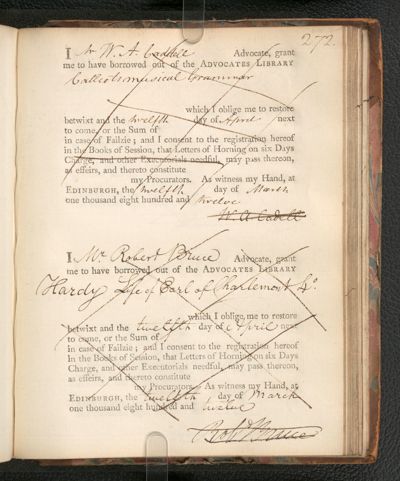 272.
I Mr W. A. Cadell Advocate, grant
me to have borrowed out of the ADVOCATES LIBRARY
Callcots musical Grammar
which I oblige me to restore
betwixt and the twelfth day of April next
to come, or the Sum of
in case of Failzie; and I consent to the registration hereof
in the Books of Session, that Letters of Horning on six Days
Charge, and other Executorials needful, may pass thereon,
as effeirs, and thereto constitute
my Procurators. As witness my Hand, at
EDINBURGH, the twelfth day of March
one thousand eight hundred and twelve
W. A. Cadell
I Mr Robert Bruce Advocate, grant
me to have borrowed out of the ADVOCATES LIBRARY
Hardy Life of Earl of Charlemont 4o.
which I oblige me to restore
betwixt and the twelfth day of April next
to come, or the Sum of
in case of Failzie; and I consent to the registration hereof
in the Books of Session, that Letters of Horning on six Days
Charge, and other Executorials needful, may pass thereon,
as effeirs, and thereto constitute
my Procurators. As witness my Hand, at
EDINBURGH, the twelfth day of March
one thousand eight hundred and twelve
Robt Bruce